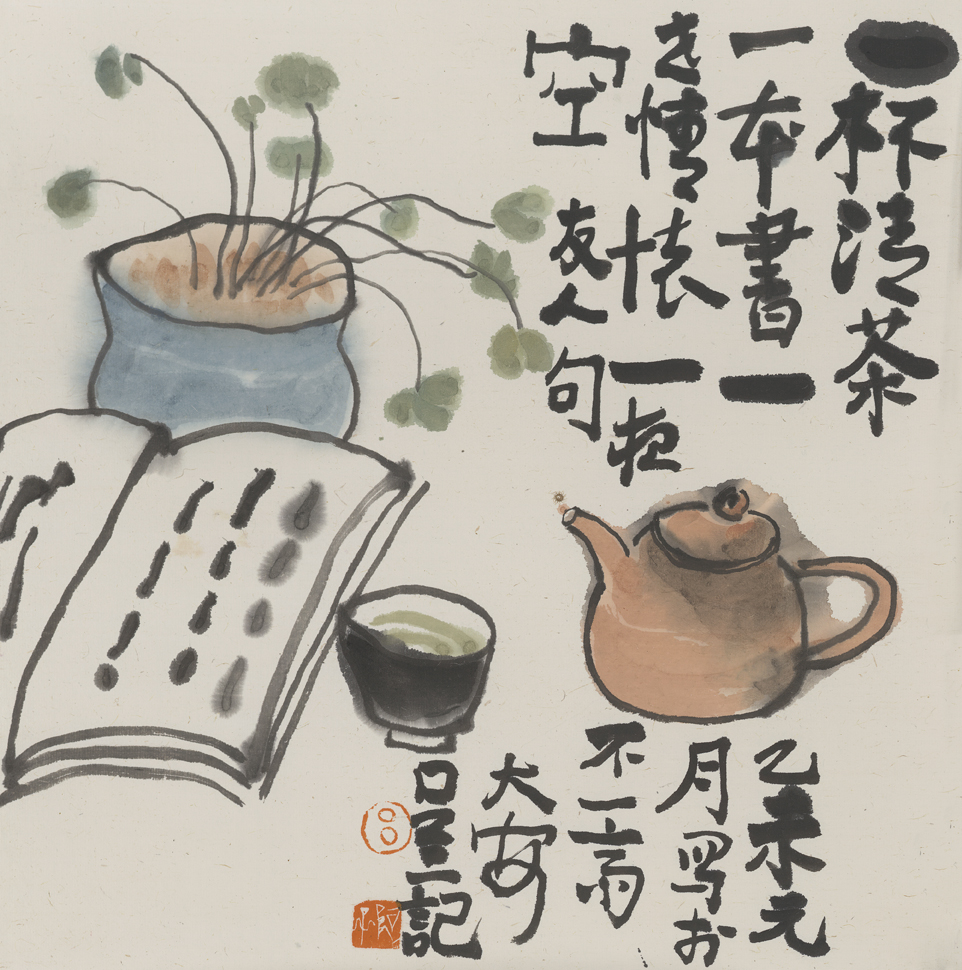 一杯清茶
一本書一
情懷一
空 友人句
乙未元
月写於
不一斋
大安
記